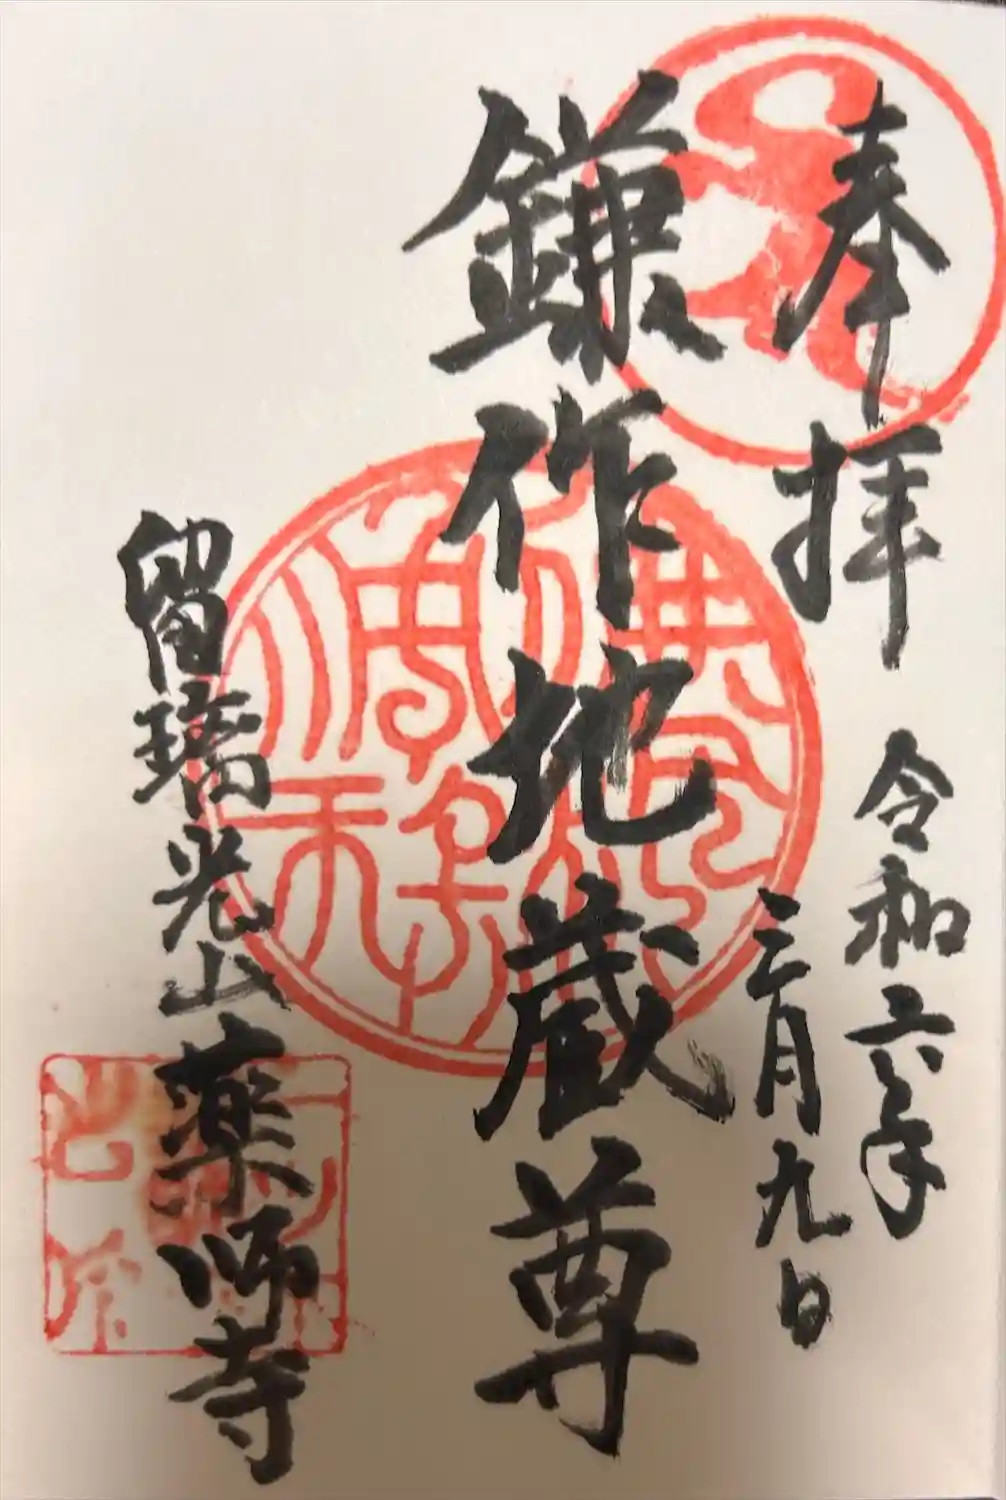 奉拝
令和六年
三月九日
鎌作地蔵尊
留璃光山薬師寺